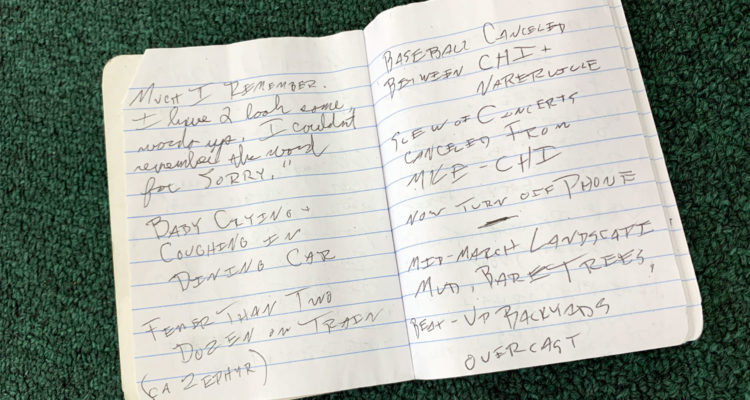 MUCH I REMEMBER.
I have 2 look some
words up. I couldn't
remember the word
for SORRY."
BABY CRYING +
COUGHING IN
DINING CAR
FEWER THAN TWO
DOZEN ON TRAIN
(CA ZEPHYR)
BASEBALL CANCELED
BETWEEN CHI +
NAPERVILLE
SLEW OF CONCERTS
CANCELED FROM
MKE - CHI
NOW TURN OFF PHONE
MID-MARCH LANDSCAPE:
MUD, BARE TREES,
BEAT-UP BACKYARDS
OVERCAST